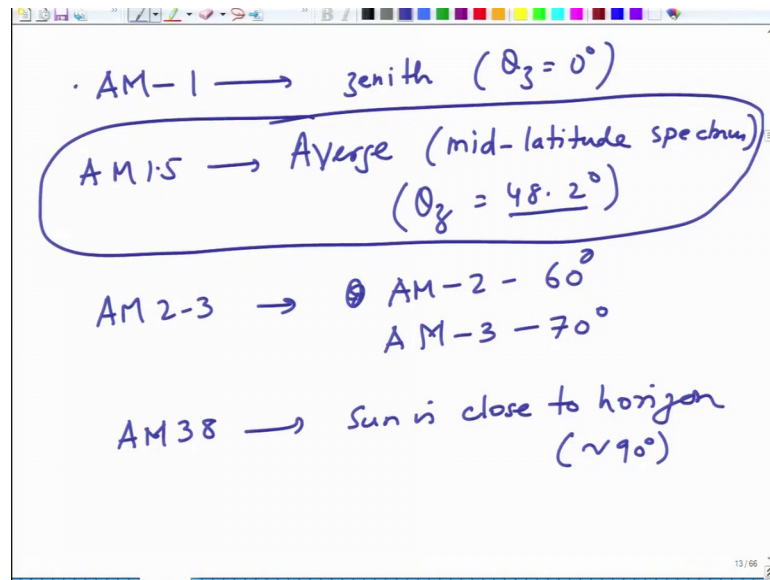 · AM-1 → zenith (θz = 0°)
AM1.5 → Averge (mid-latitude spectrum)
(θz = 48.2°)
AM 2-3 → AM-2 - 60°
AM-3 - 70°
AM38 → Sun is close to horizon
(~90°)
13 / 66